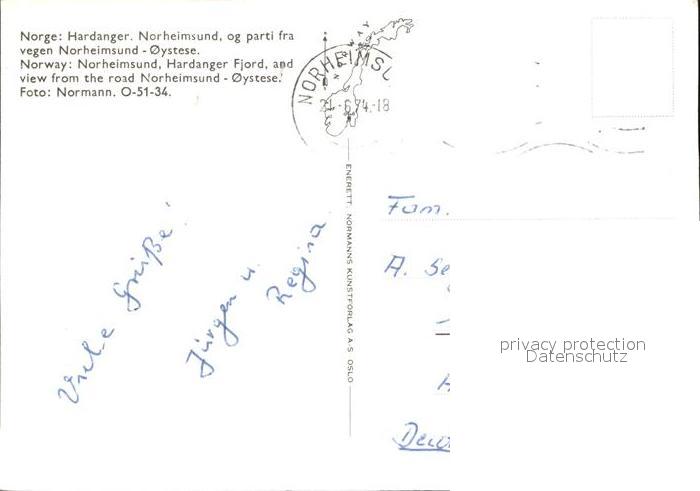 Norge: Hardanger. Norheimsund, og parti fra
vegen Norheimsund - Øystese.
Norway: Norheimsund, Hardanger Fjord, and
view from the road Norheimsund - Øystese.
Foto: Normann. O-51-34.
NORWAY
NORHEIMSU
-6.74.-18
ENERETT: NORMANNS KUNSTFORLAG A.S OSLO
Viele Grüße!
Jürgen u.
Regina
Fam.
A. Se
privacy protection
Datenschutz